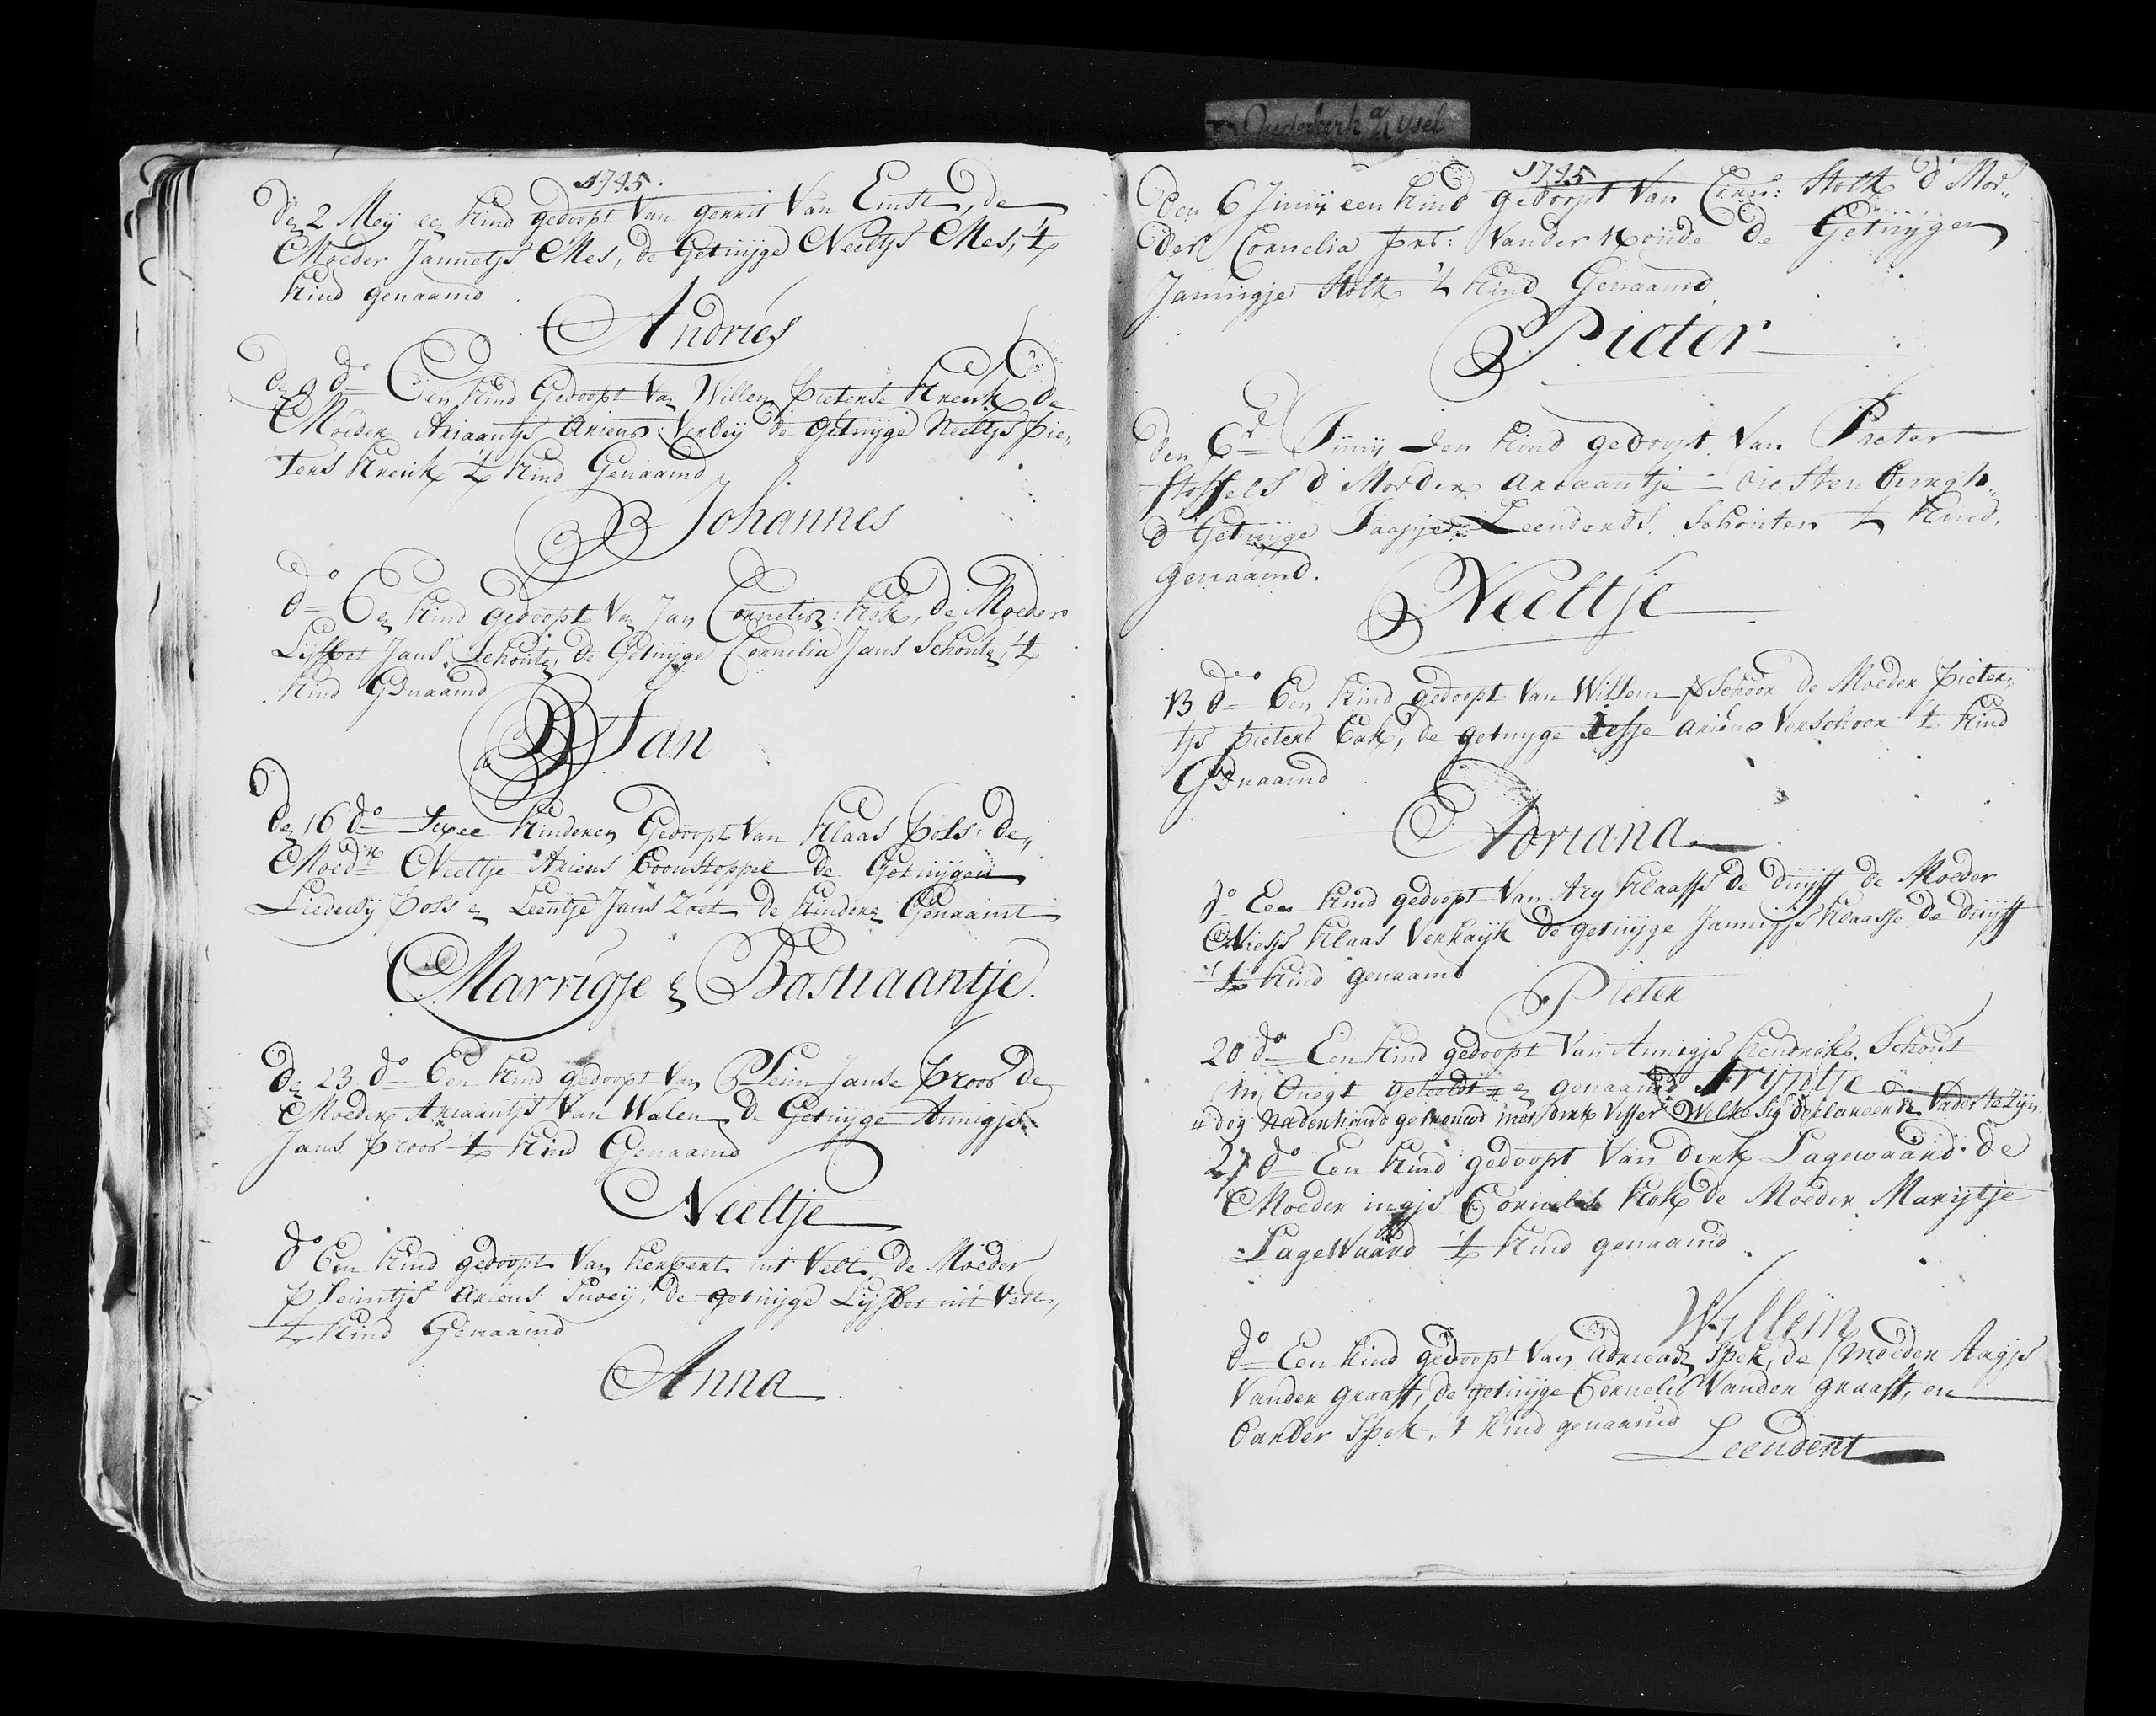 Ouderkerk a/d Ysel
1745.
Den 2 Meij een kind gedoopt van gerrit van Einst, de
Moeder Jannetje Mes, de Getuijge Neeltje Mes, 't
kind genaamd
Andries
Den 9 do Een kind Gedoopt van Willem Pieterse Kreuk de
Moeder Ariaantje Ariens Verbeij de Getuijge Neeltje Pie„
ters Kreuk 't kind Genaamd
Johannes
do Een kind gedoopt van Jan Cornelisz: Kok, de Moeder
Lijsbet Jans Schoute, de Getuijge Cornelia Jans Schoute, 't
kind Genaamd
Jan
Den 16 do Twee kinderen Gedoopt van Klaas Pols, de„
Moedr Neeltje Ariens Boonstoppel de Getuijgen
Liedewij Pols en Leentje Jans Zoet de kinderen Genaamt
Marrigje en Bastiaantje.
Den 23 do Een kind gedoopt van Pleun Janse Proos de
Moeder Ariaantje van Walen de Getuijge Annigje
Jans Proos 't kind Genaamd
Neeltje
do Een kind gedoopt van Herbert uit Velt, de Moeder
Pleuntje Ariens Sneeij, de getuijge Lijsbet uit Velt,
't kind Genaamd
Anna
1745
Den 6 Junij een kind gedoopt van Corn: Stolk d' Moe„
der Cornelia Prs: van der Koude de Getuijgen
Jannigje Stolk 't kind Genaamd
Pieter
den 6n Junij een kind gedoopt van Pieter
Stoffels d' Moeder Ariaantje Oiestenburgh„
d' Getuijge Jaapje Leenderds. Schouten 't kind.
genaamd.
Neeltje
13 do Een kind gedoopt van Willem Schoor de Moeder Pieter„
tje Pieters Eak, de getuyge Ariens Verschoor 't kind
Genaamd
Adriana
do Een kind gedoopt van Ary Klaasse de Druijff de Moeder
Niesje Klaas Verkaijk de getuijge Jannigje Klaasse de Druijff
't kind genaamd
Pieter
20 do Een kind gedoopt van Annigje Hendriks. Schout
in Onegt geteeldt en genaamd Trijntje
dog Naderhand getrouwd met dirk Visser Welke sig deklareerde Vader te zijn.
27 do Een kind gedoopt van dirk Lagewaard. de
Moeder ingje Cornelis Kok de Moeder Marijtje
Lagewaard 't kind genaamd
Willem
do Een kind gedoopt van Adriaan Spek, de Moeder Aagje
vander graaff, de getuijge Cornelis vander graaff, en
Barber Spek, 't kind genaamd
Leendert